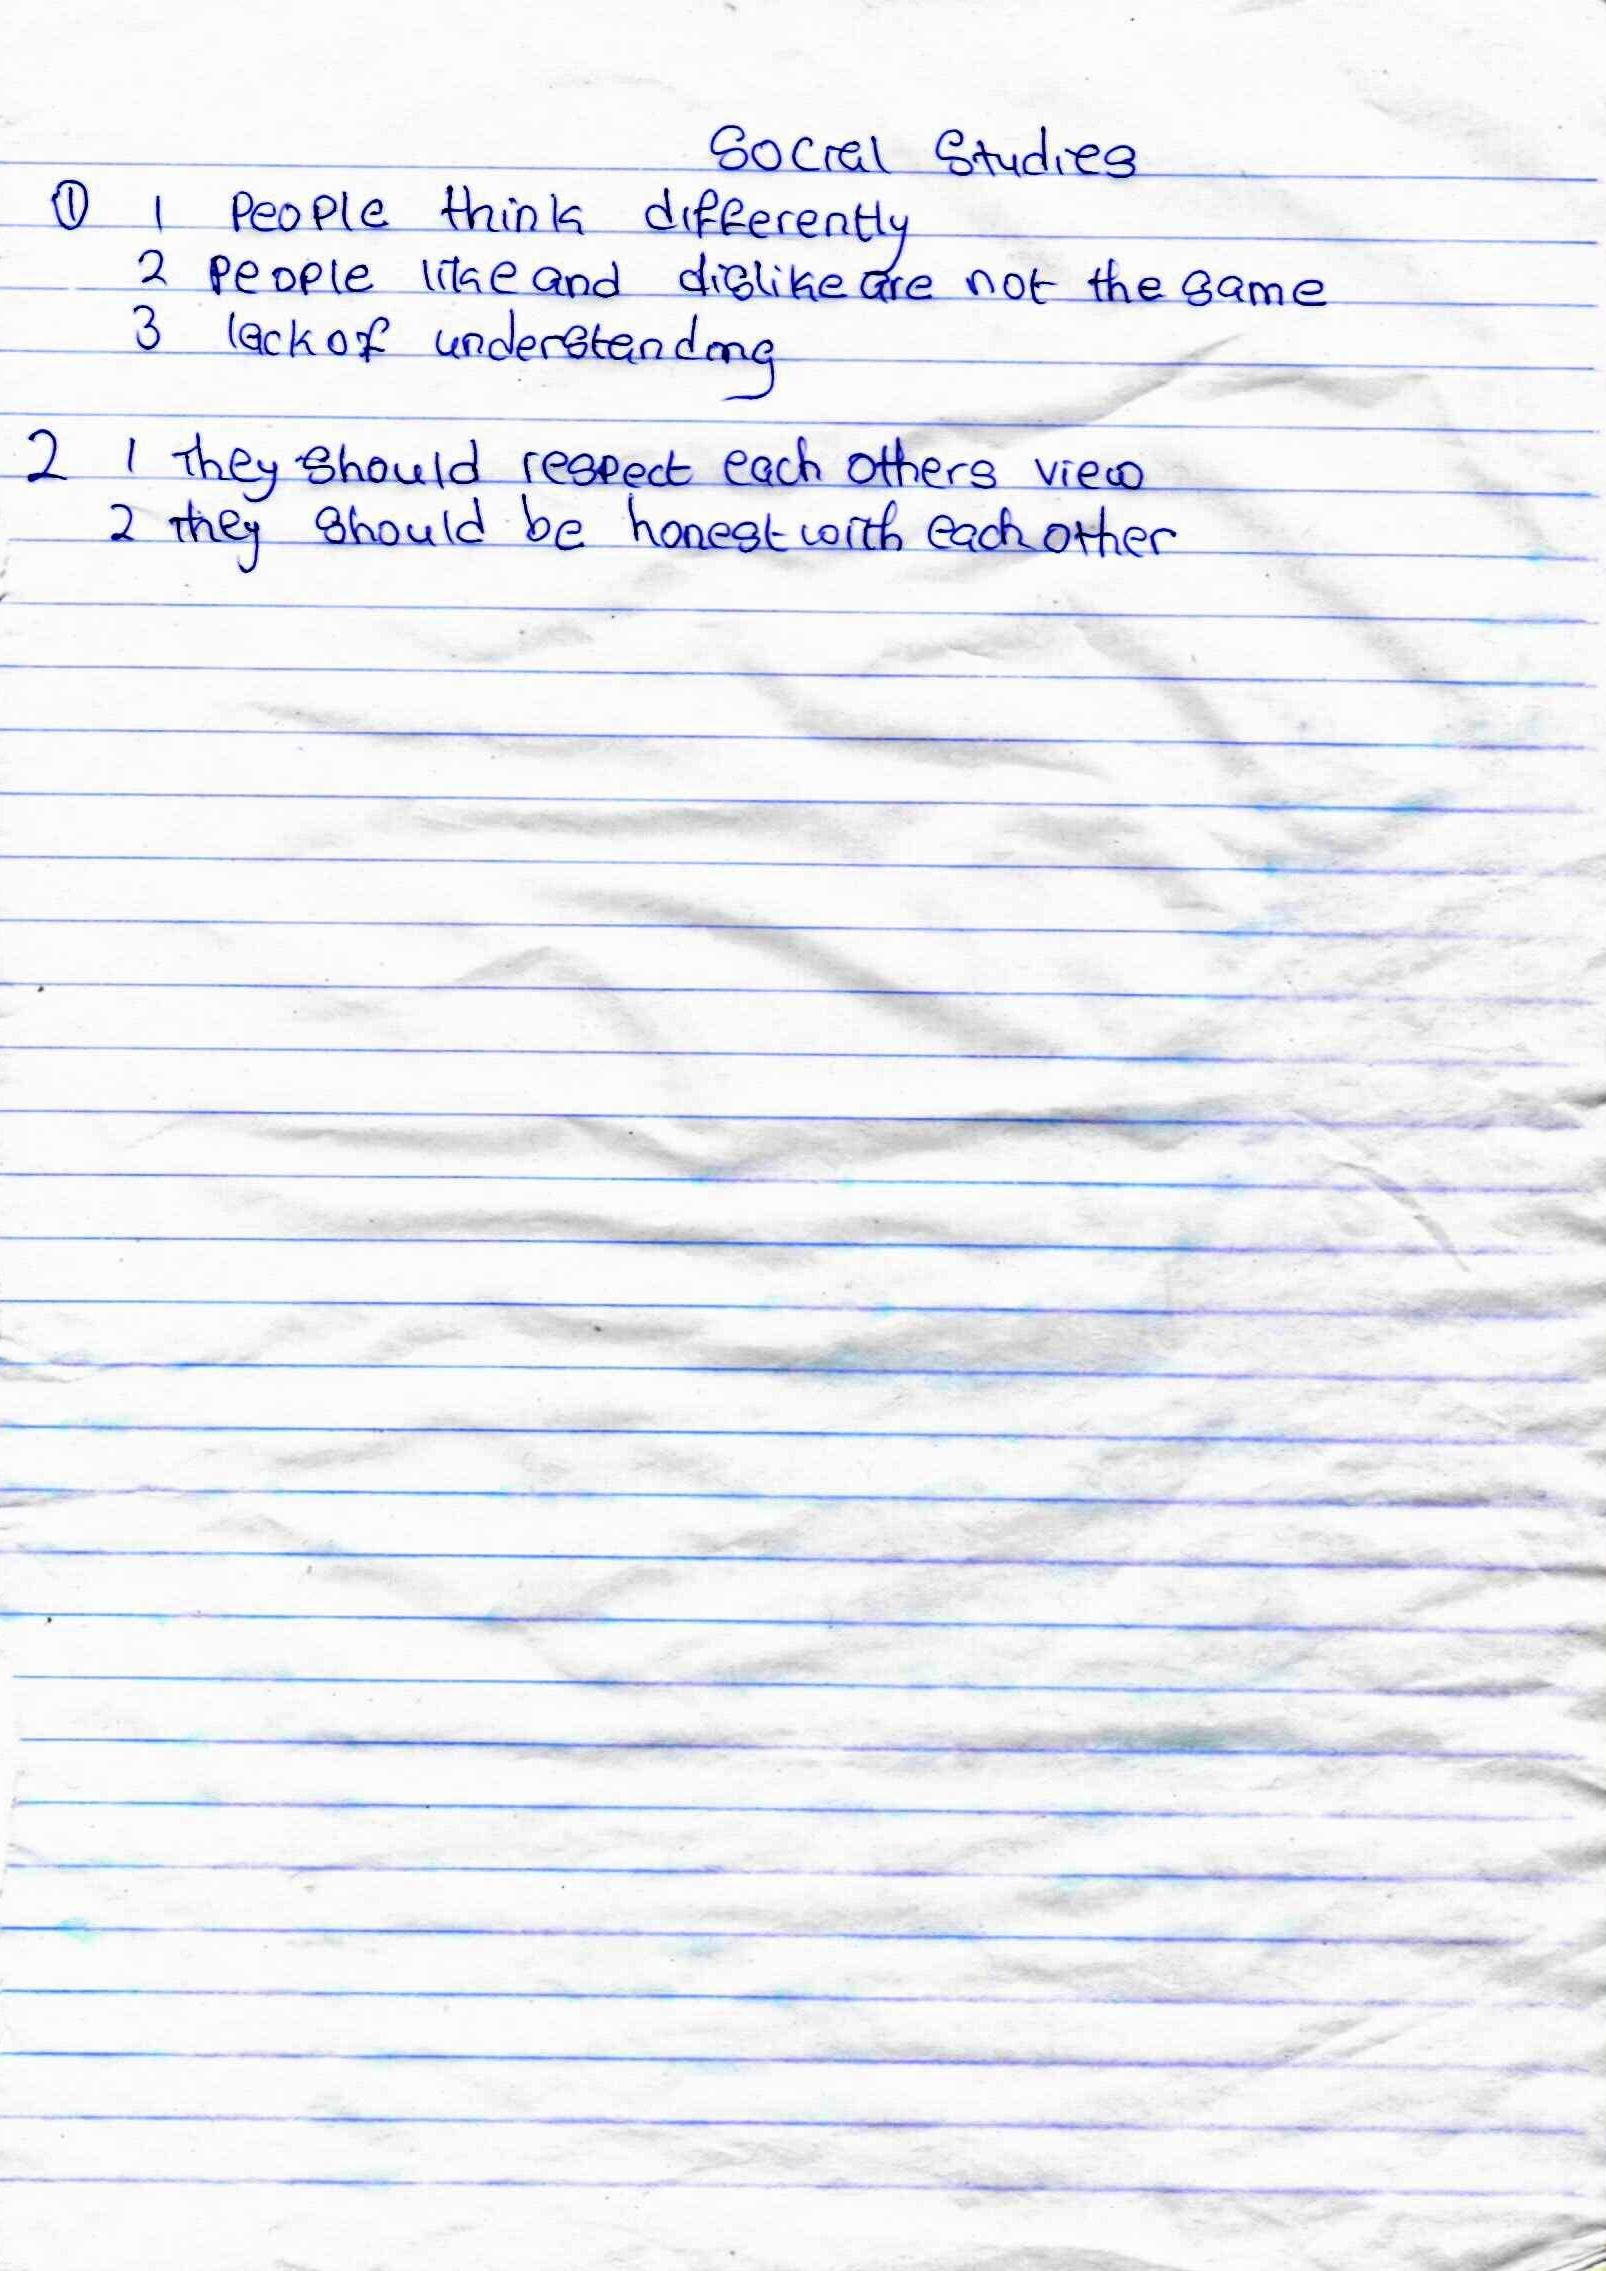 Social Studies
① 1 People think differently
2 People like and dislike are not the same
3 lack of understanding
2 1 They should respect each others view
2 they should be honest with each other